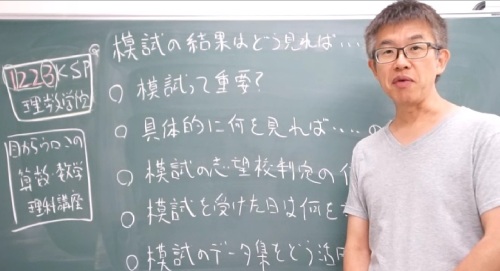 1223KSP
理数学館
目からウロコの
算数・数学
理科講座
模試の結果はどう見れば…
○ 模試って重要?
○ 具体的に何を見れば….の
○ 模試の志望校判定の
○ 模試を受けた日は何を
○ 模試のデータ集をどう活用